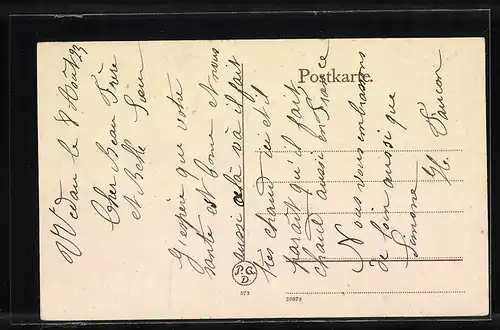 Wedau le 8 Août 23
Cher Beau Frère
et Belle Sœur
J'espère que votre
santé est bonne et nous
aussi cela va il fait
très chaud ici et il
parait qu'il fait
chaud aussi en France
Nous vous embrassons
de loin aussi que
Simone
Postkarte.
P G D
573
26878